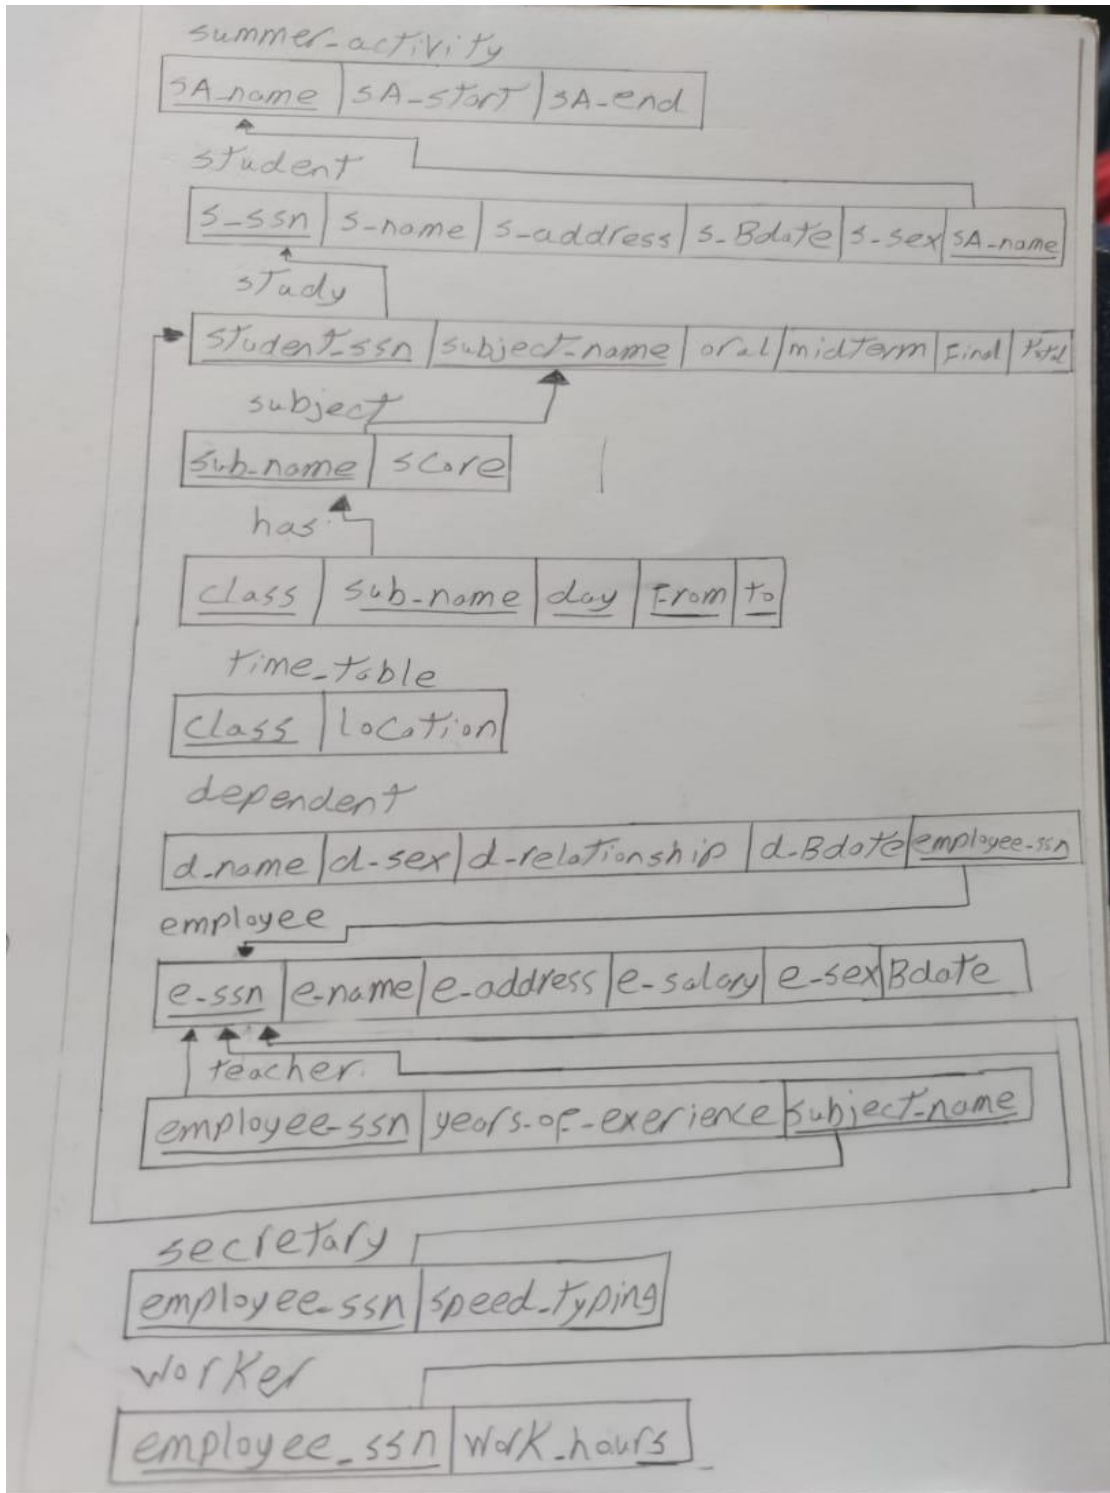 summer_activity
sA_name sA_start sA_end
student
s_ssn s_name s_address s_Bdate s_sex sA_name
study
student_ssn subject_name oral midterm Final total
subject
sub_name score
has
class sub_name day From to
time_table
class location
dependent
d_name d_sex d_relationship d_Bdate employee_ssn
employee
e_ssn e_name e_address e_salary e_sex Bdate
teacher
employee_ssn years_of_exerience subject_name
secretary
employee_ssn speed_typing
worker
employee_ssn work_hours